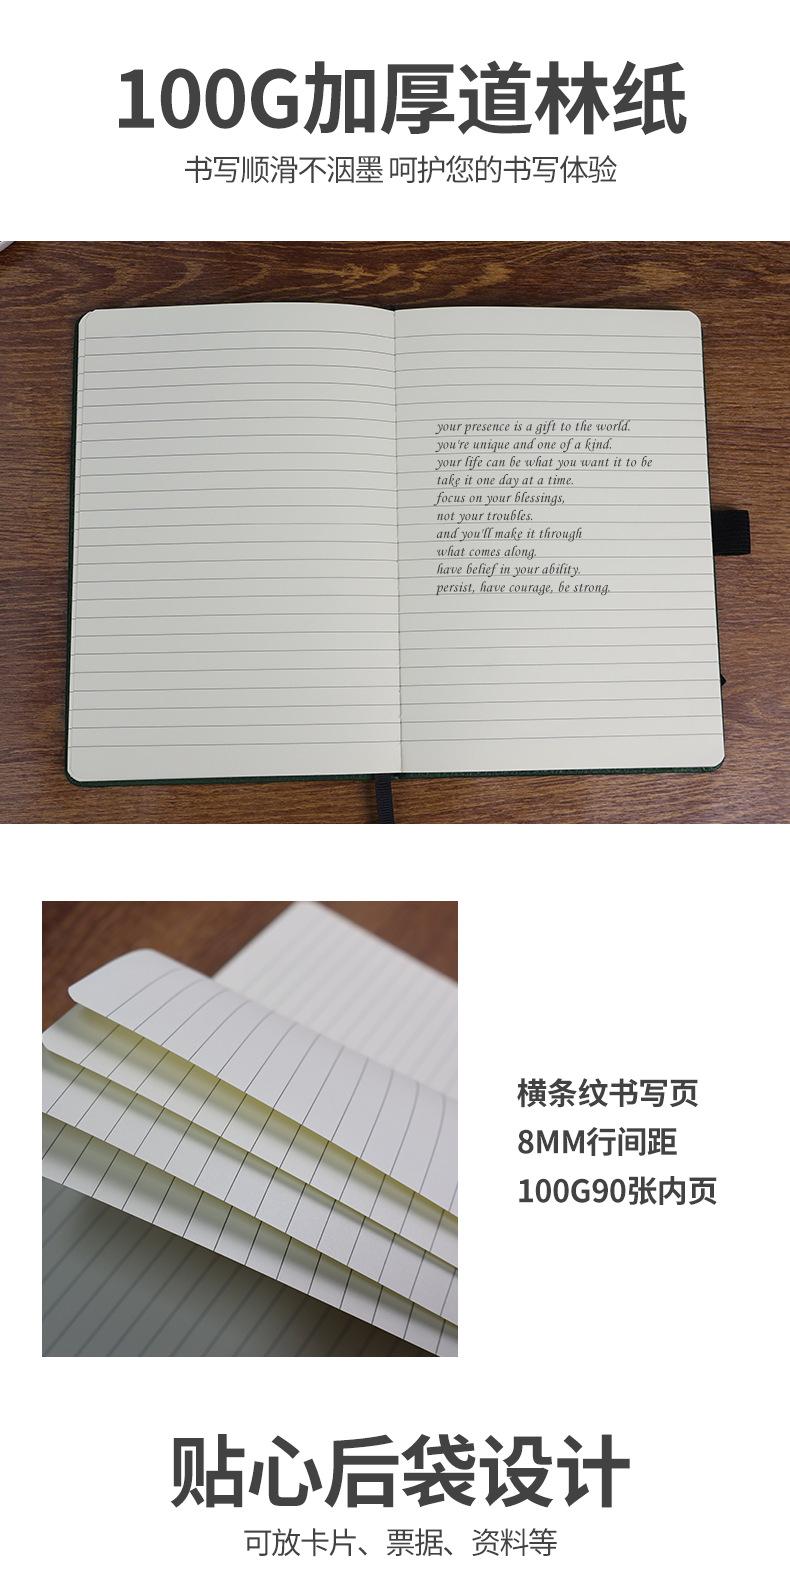 100G加厚道林纸
书写顺滑不洇墨 呵护您的书写体验
your presence is a gift to the world.
you're unique and one of a kind.
your life can be what you want it to be
take it one day at a time.
focus on your blessings,
not your troubles.
and you'll make it through
what comes along.
have belief in your ability.
persist, have courage, be strong.
横条纹书写页
8MM行间距
100G90张内页
贴心后袋设计
可放卡片、票据、资料等